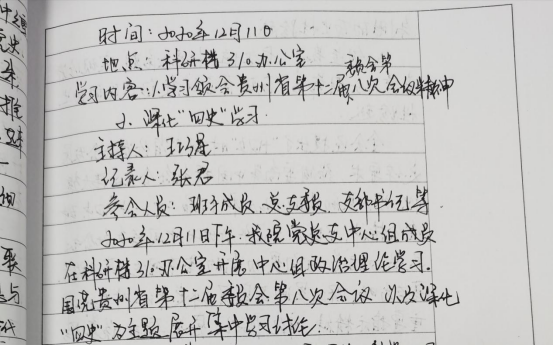 时间:2020年12月11日
地点:科研楼310办公室
学习内容:1.学习领会贵州省第十二届委会第八次会议精神
2、深化"四史"学习.
主持人:王
记录人:张君
参会人员:班子成员、总支委员、支部书记等
2020年12月11日下午,我院党总支中心组成员
在科研楼310办公室开展中心组政治理论学习.
围绕贵州省第十二届委会第八次会议 以及深化
"四史"为主题展开集中学习讨论.